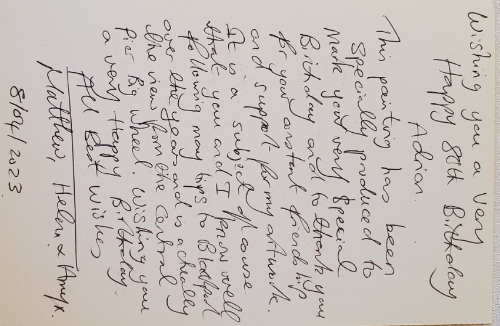 Wishing you a very
Happy 88th Birthday
Adrian.
This painting has been
specially produced to
Mark your very special
Birthday and to thank you
for your constant friendship
and support for my artwork.
It is a subject of course
that you and I know well
following many trips to Blackpool
over the years and is actually
the view from the Central
Pier Big Wheel. Wishing you
a very Happy Birthday.
All Best Wishes
Matthew, Helen & Amy x.
8/04/2023